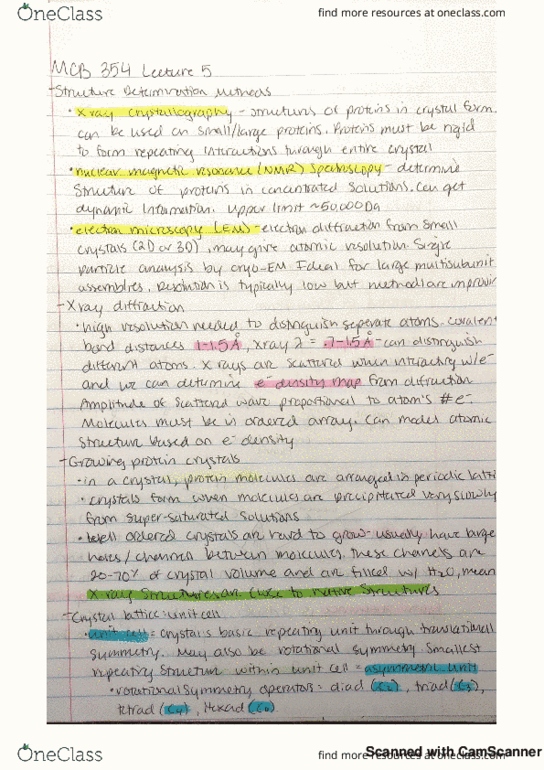 OneClass
find more resources at oneclass.com
MCB 354 Lecture 5
-Structure Determination Methods
• X ray crystallography - structures of proteins in crystal form.
can be used on small/large proteins. Proteins must be rigid
to form repeating interactions through entire crystal
• nuclear magnetic resonance (NMR) spectroscopy - determine
structure of proteins in concentrated solutions. Can get
dynamic information. Upper limit ~50,000Da
• electron microscopy (EM) - electron diffraction from small
crystals (2D or 3D), may give atomic resolution. Single
particle analysis by cryo-EM Ideal for large multisubunit
assemblies. Resolution is typically low but methods are improvi
- X ray diffraction
• high resolution needed to distinguish seperate atoms. Covalent
bond distances 1-1.5Å, xray λ = .7-1.5Å - can distinguish
different atoms. X rays are scattered when interacting w/e-
and we can determine e- density map from difraction
Amplitude of scattered wave proportional to atom's #e-
Molecules must be in ordered array. Can model atomic
structure based on e- density
- Growing protein crystals
• in a crystal, protein molecules are arranged in periodic latti
• crystals form when molecules are precipitated very slowly
from super-saturated solutions
• Well ordered crystals are hard to grow - usually have large
holes/channels between molecules. These channels are
20-70% of crystal volume and are filled w/ H2O, mean
X ray structures are close to native structures
- Crystal lattice: unit cell
• unit cell = crystal's basic repeating unit through translational
symmetry. May also be rotational symmetry. Smallest
repeating structure within unit cell = asymmetric unit
• rotational symmetry operators: diad (C2), triad (C3),
tetrad (C4), Hexad (C6)
OneClass
find more resources at oneclass.com
Scanned with CamScanner